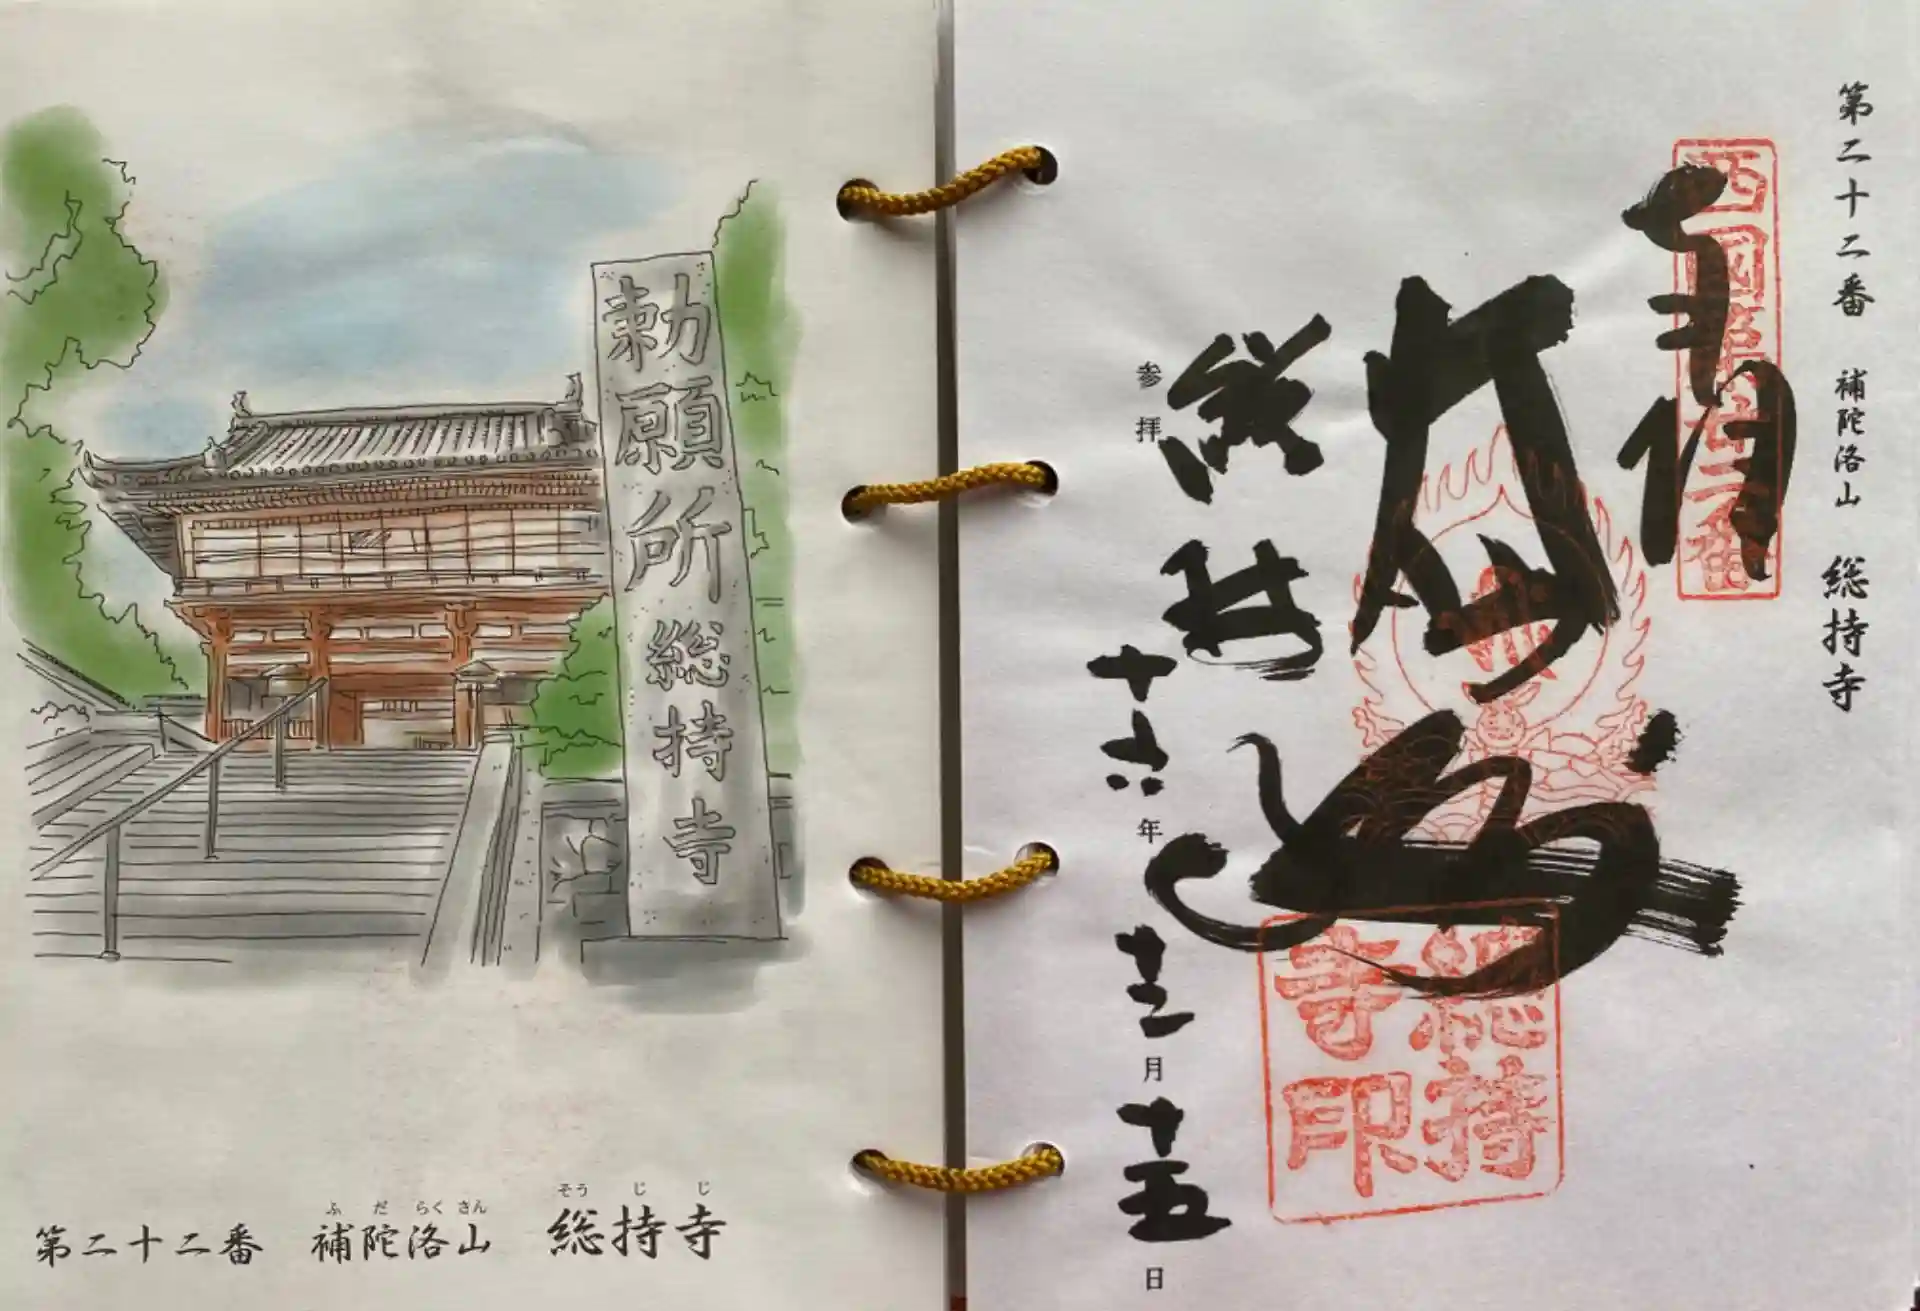 勅願所総持寺
ふだらくさん そうじじ
第二十二番 補陀洛山 総持寺
第二十二番 補陀洛山 総持寺
西国第廿二番
総持寺
参拝 十六年 十二月 十五日
総持寺印